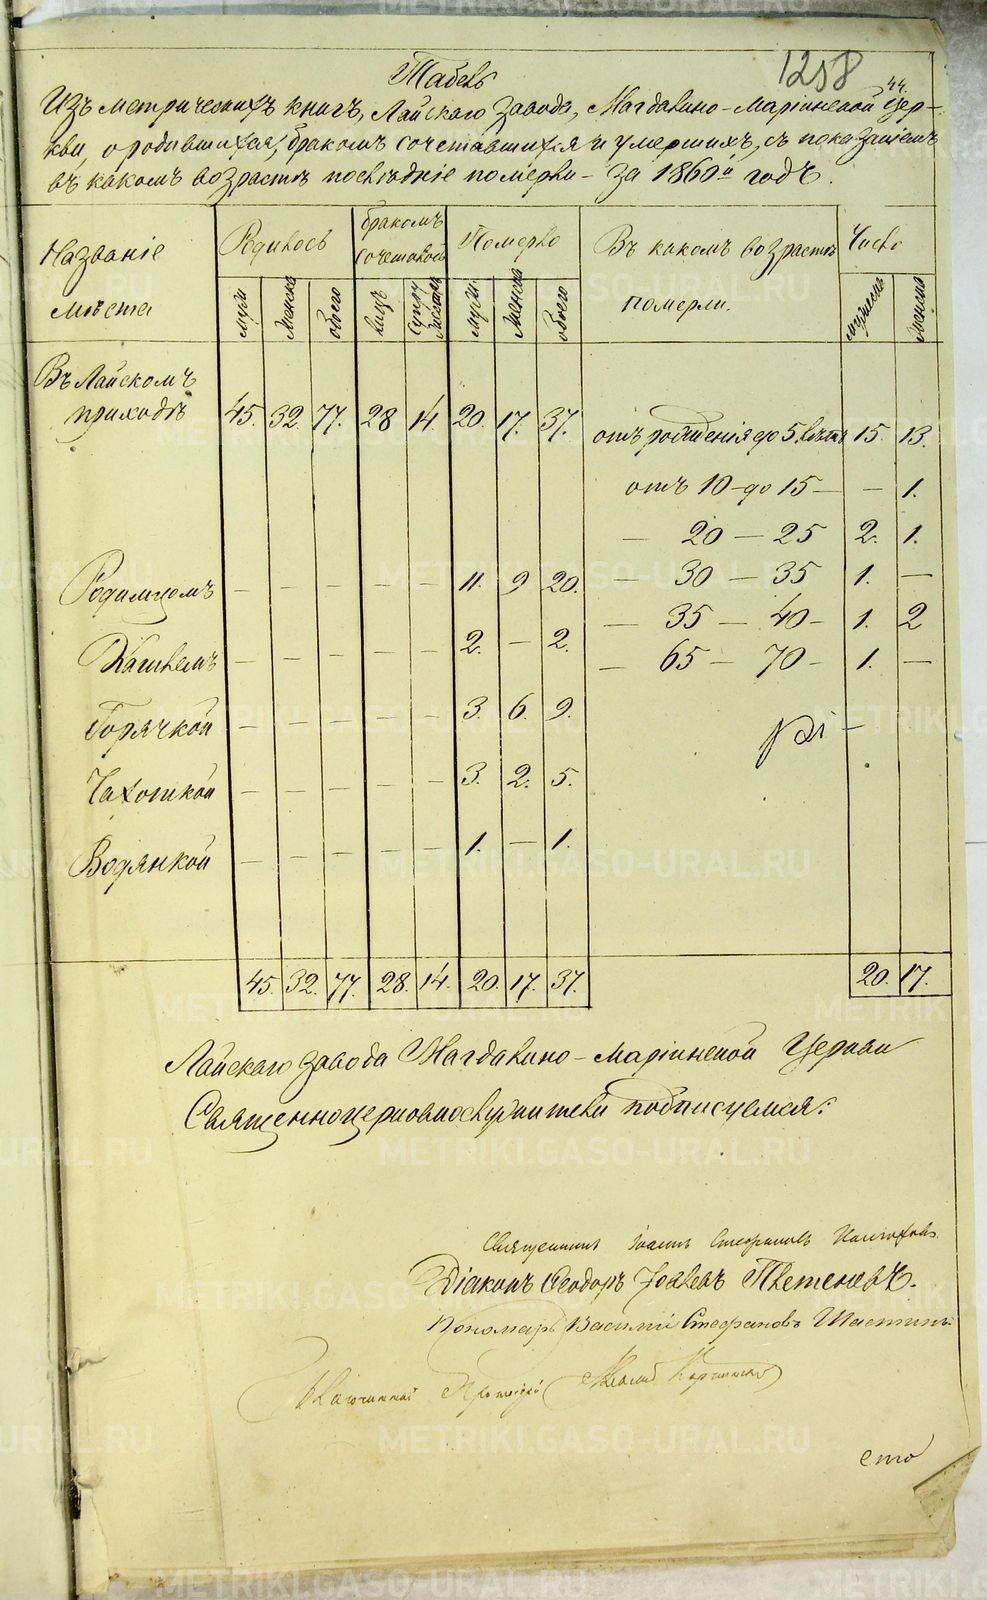 1258
44.
Табель
Изъ метрическихъ книгъ, Лайскаго завода, Магдалино-Маріинской Цер-
кви, о родившихся, бракомъ сочетавшихся и умершихъ, съ показаніемъ
въ какомъ возрастѣ послѣдніе померли - за 1860й годъ.
Названіе мѣста Родилось бракомъ сочеталось Померло Въ какомъ возрастѣ померли. Число
муж женска обоего лицъ супру жествъ муж. женска обоего мужеска женска
Въ Лайскомъ
приходѣ 45. 32. 77. 28 14. 20. 17. 37. отъ рожденія до 5. лѣтъ 15. 13.
отъ 10 - до 15 - - 1.
- 20 - 25 2. 1.
Родимцомъ - - - - - 11. 9 20. - 30 - 35 1. -
- 35 - 40 - 1. 2
Кашлемъ - - - - - 2. - 2. - 65 - 70 - 1. -
Горячкой - - - - - 3. 6. 9.
Чахоткой - - - - - 3. 2. 5.
Водянкой - - - - - 1. - 1.
45. 32. 77. 28. 14. 20. 17. 37. 20. 17.
Лайскаго завода Магдалино-Маріинской Церкви
Священноцерковнослужители подписуемся:
Священникъ Іоаннъ Стефановъ
Діаконъ Феодоръ Іовлевъ Плетеневъ.
Пономарь Василій Стефановъ Шастинъ
Протоіерей
сто
METRIKI.GASO-URAL.RU